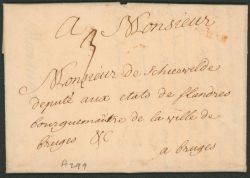 a Monsieur
3
Monsieur de Schietere
deputé aux etats de flandres
bourguemaitre de la ville de
bruges &c
a bruges
A299